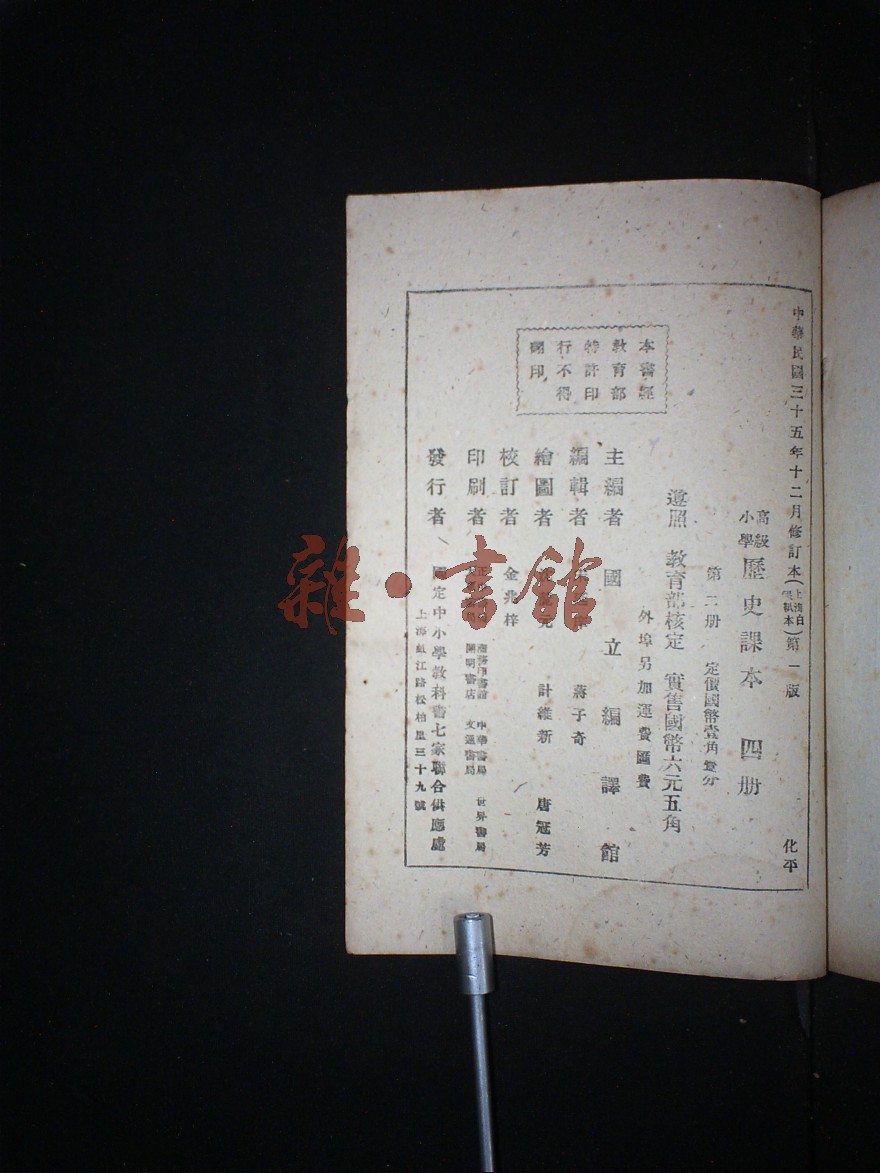 中華民國三十五年十二月修訂本(上海白報紙本)第一版
化平
高級
小學
歷史課本 四册
第二册 定價國幣壹角
遵照 教育部核定 實售國幣六元五角
外埠另加運費匯費
主編者 國立編譯館
編輯者 蔣子奇
繪圖者 計維新 唐冠芳
校訂者 金兆梓
印刷者 商務印書館 中華書局 世界書局
開明書店 文通書局
發行者 國定中小學教科書七家聯合供應處
上海虹江路松柏里三十九號
本書經
教育部
特許印
行不得
翻印
雜·書館